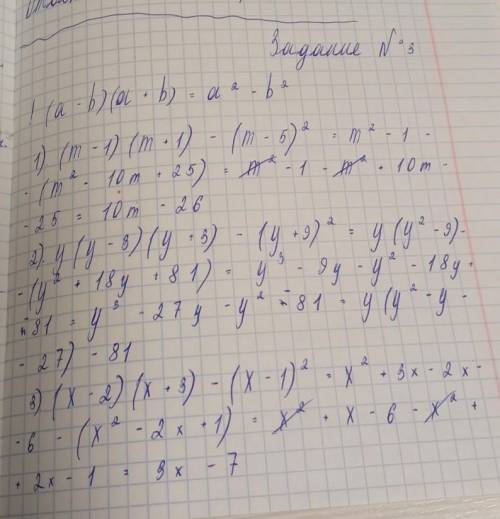 Задание № 3
! (a - b)(a + b) = a² - b²
1) (m - 1)(m + 1) - (m - 5)² = m² - 1 -
- (m² - 10m + 25) = m² - 1 - m² + 10m -
- 25 = 10m - 26
2) y(y - 3)(y + 3) - (y + 9)² = y(y² - 9) -
- (y² + 18y + 81) = y³ - 9y - y² - 18y -
- 81 = y³ - 27y - y² - 81 = y(y² - y -
- 27) - 81
3) (x - 2)(x + 3) - (x - 1)² = x² + 3x - 2x -
- 6 - (x² - 2x + 1) = x² + x - 6 - x² +
+ 2x - 1 = 3x - 7